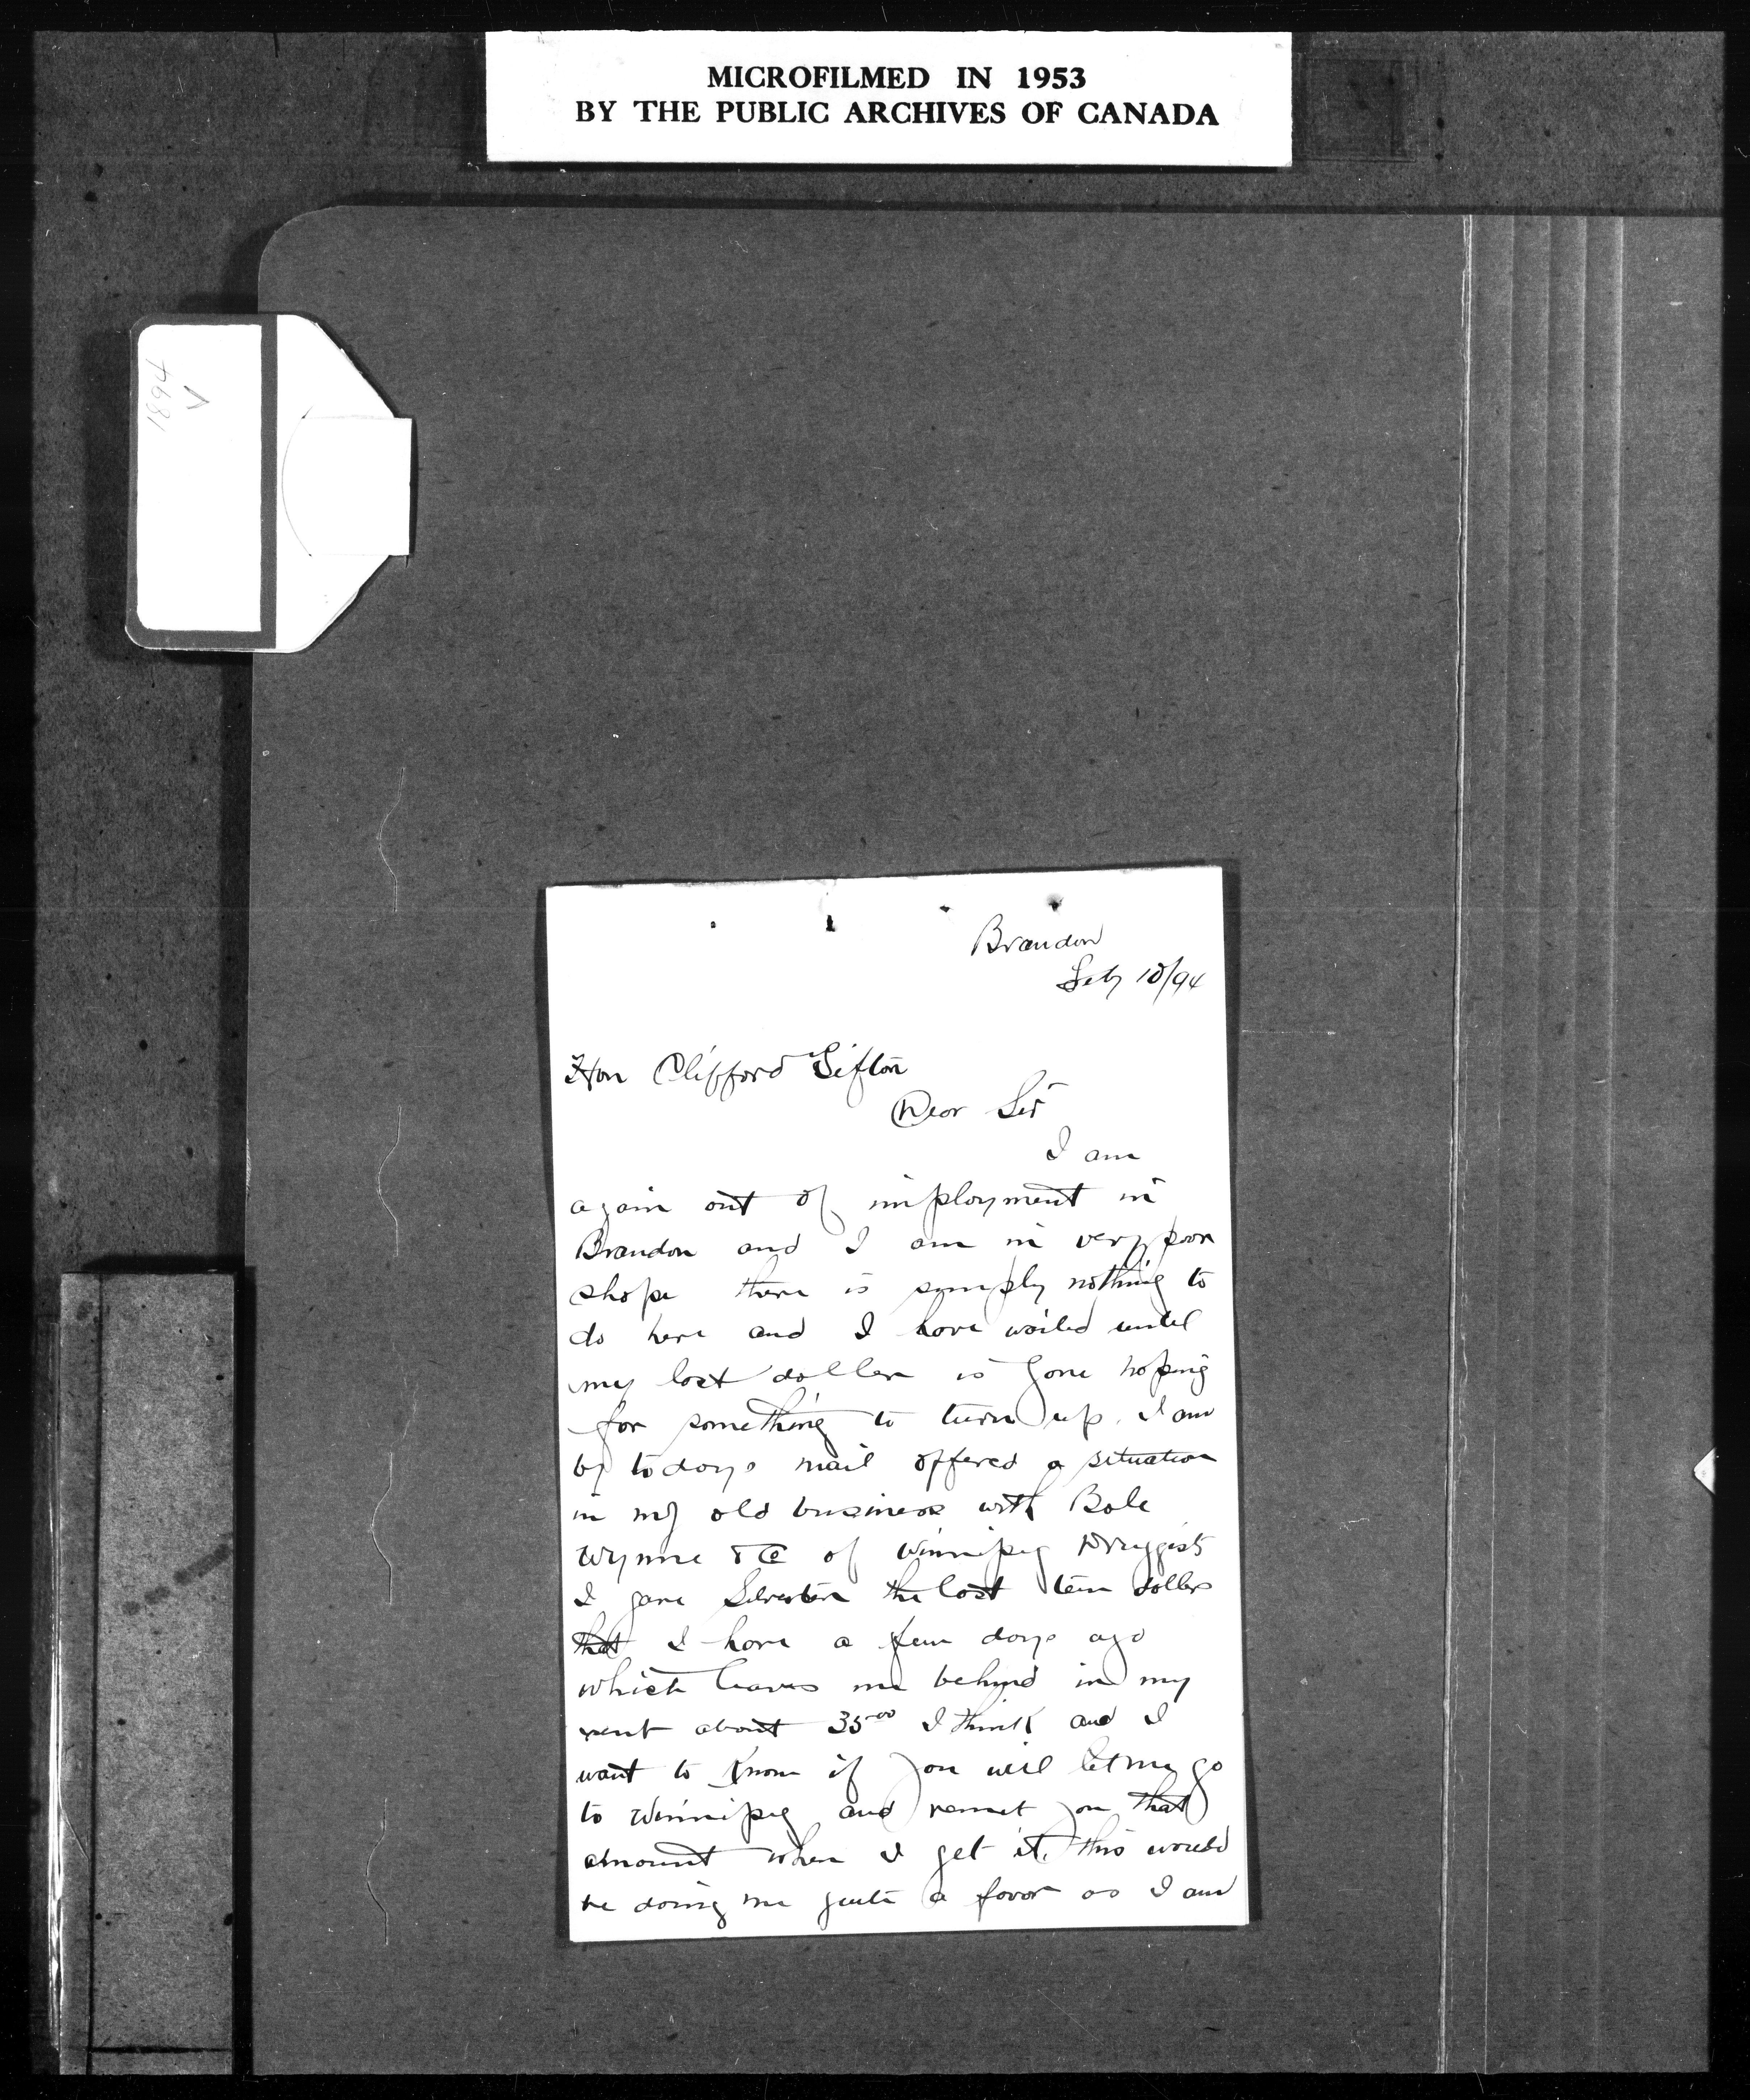 MICROFILMED IN 1953
BY THE PUBLIC ARCHIVES OF CANADA
V
1894
Brandon
Feby 10/94
Hon Clifford Sifton
Dear Sir
I am
again out of imployment in
Brandon and I am in very poor
shape there is simply nothing to
do here and I have waited until
my last dollar is gone hoping
for something to turn up. I am
by todays mail offered a situation
in my old business with Bole
Wynne & Co of Winnipeg Druggists
I gave the last ten dollars
that I have a few days ago
which leaves me behind in my
rent about 35.00 I think and I
want to know if you will let me go
to Winnipeg and remit you that
amount when I get it. this would
be doing me quite a favor as I am